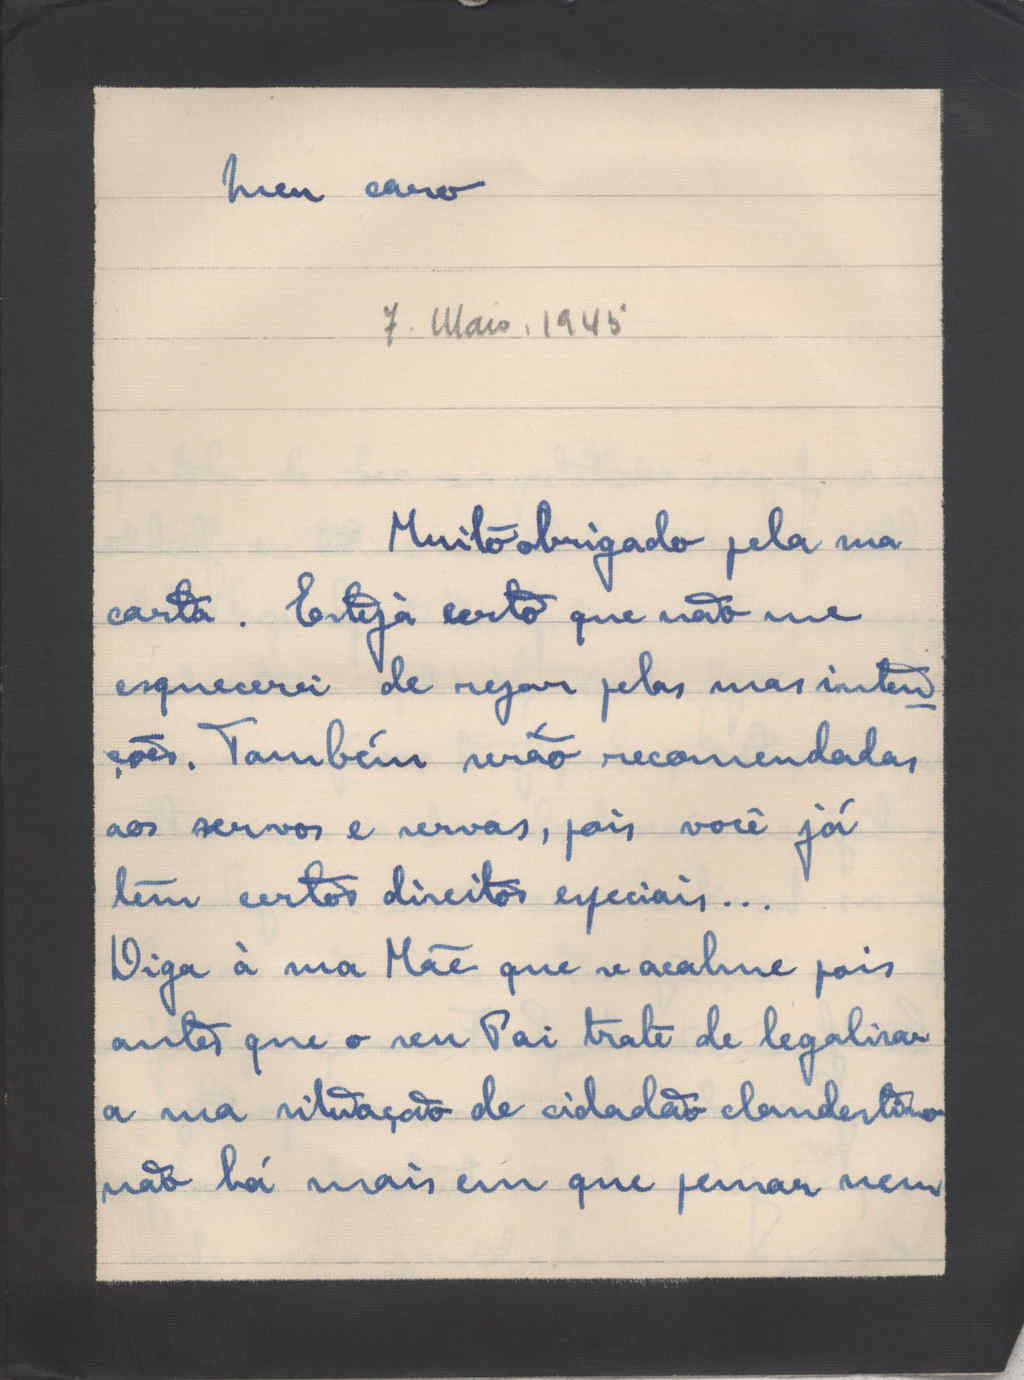 Meu caro
7. Maio. 1945
Muito obrigado pela sua
carta. Esteja certo que não me
esquecerei de rezar pelas suas inten
ções. Também serão recomendadas
aos servos e servas, pois você já
têm certos direitos especiais...
Diga à sua Mãe que se acalme pois
antes que o seu Pai trate de legalisar
a sua situação de cidadão clandestino
não há mais em que pensar nem